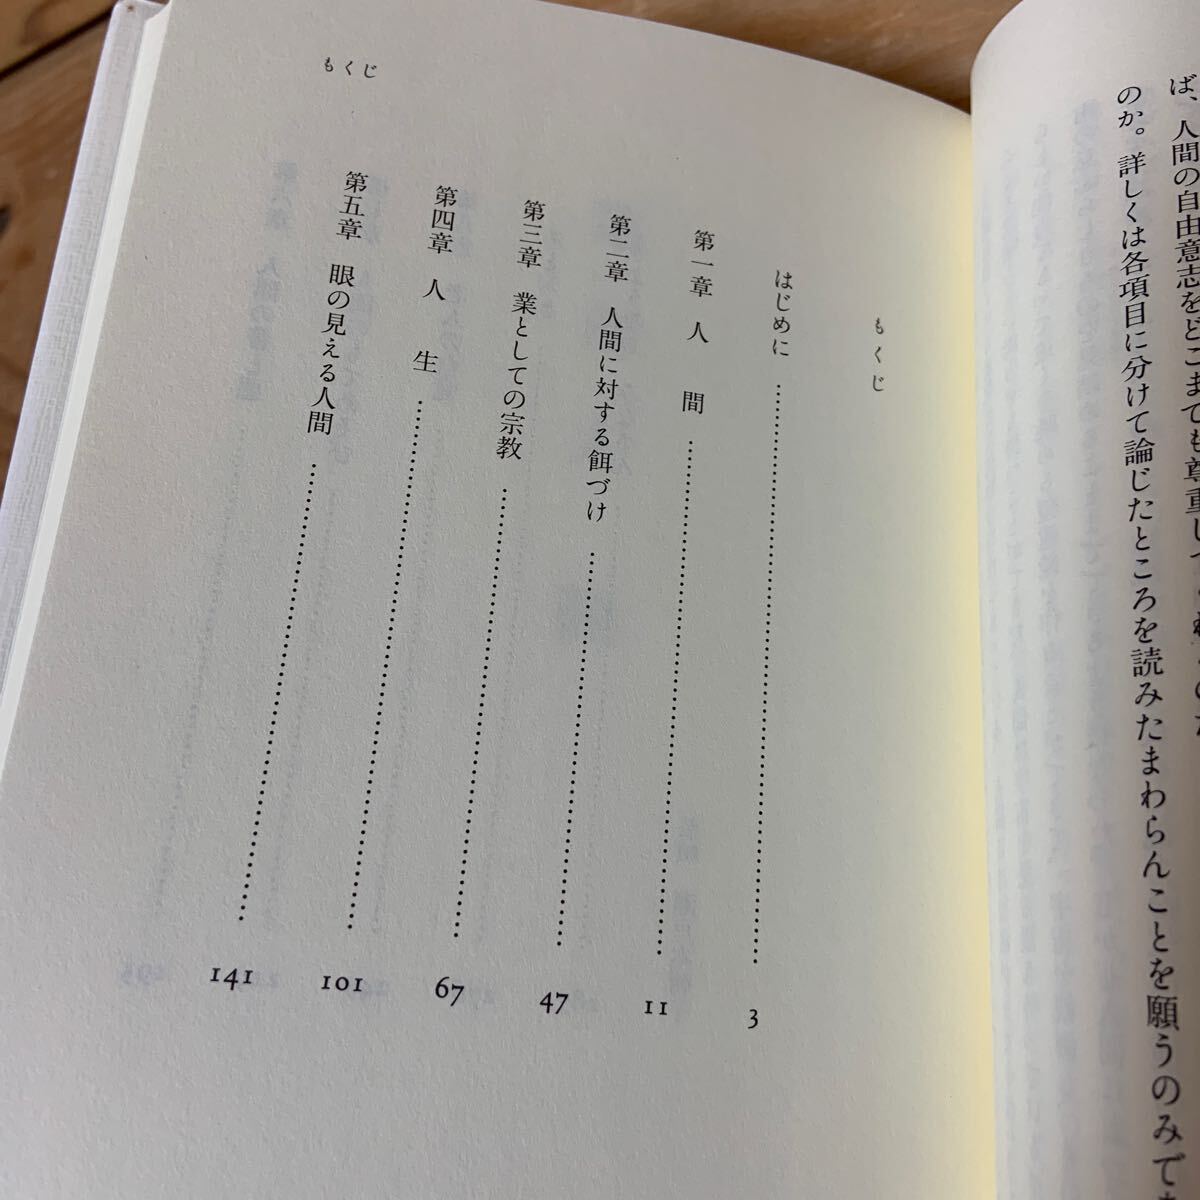 ば、人間の自由意志をどこまでも尊重し
のか。詳しくは各項目に分けて論じたところを読みたまわらんことを願うのみで
もくじ
もくじ
はじめに 3
第一章 人間 11
第二章 人間に対する餌づけ 47
第三章 業としての宗教 67
第四章 人生 101
第五章 眼の見える人間 141